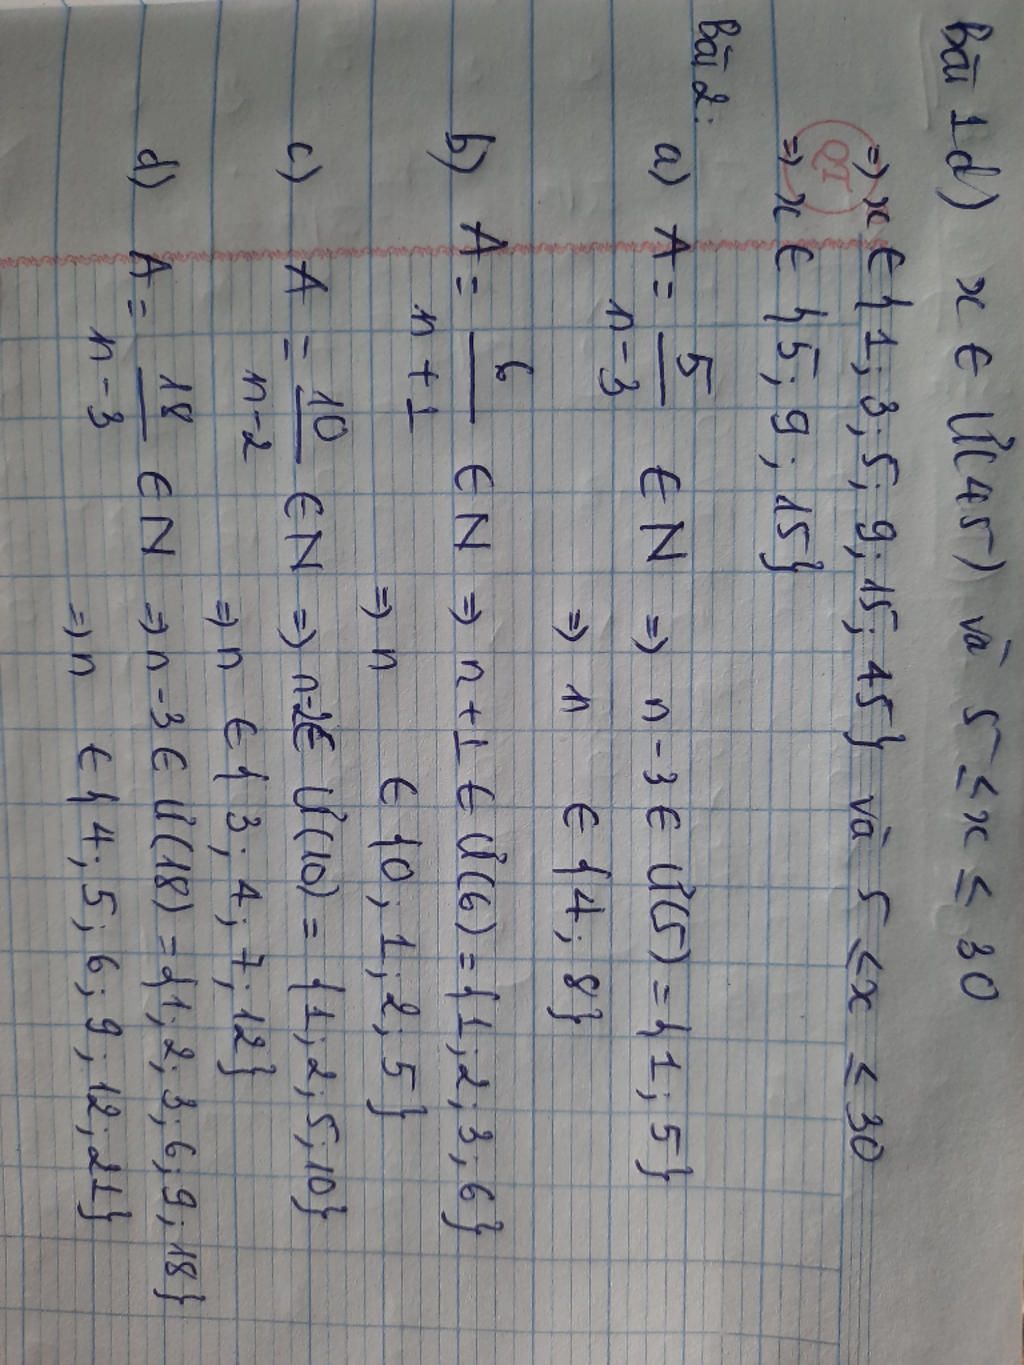 Bài 1d) x ∈ Ư(45) và 5 ≤ x ≤ 30
⇒ x ∈ {1; 3; 5; 9; 15; 45} và 5 ≤ x ≤ 30
⇒ x ∈ {5; 9; 15}
Bài 2:
a) A = 5/(n-3) ∈ N ⇒ n-3 ∈ Ư(5) = {1; 5}
⇒ n ∈ {4; 8}
b) A = 6/(n+1) ∈ N ⇒ n+1 ∈ Ư(6) = {1; 2; 3; 6}
⇒ n ∈ {0; 1; 2; 5}
c) A = 10/(n-2) ∈ N ⇒ n-2 ∈ Ư(10) = {1; 2; 5; 10}
⇒ n ∈ {3; 4; 7; 12}
d) A = 18/(n-3) ∈ N ⇒ n-3 ∈ Ư(18) = {1; 2; 3; 6; 9; 18}
⇒ n ∈ {4; 5; 6; 9; 12; 21}